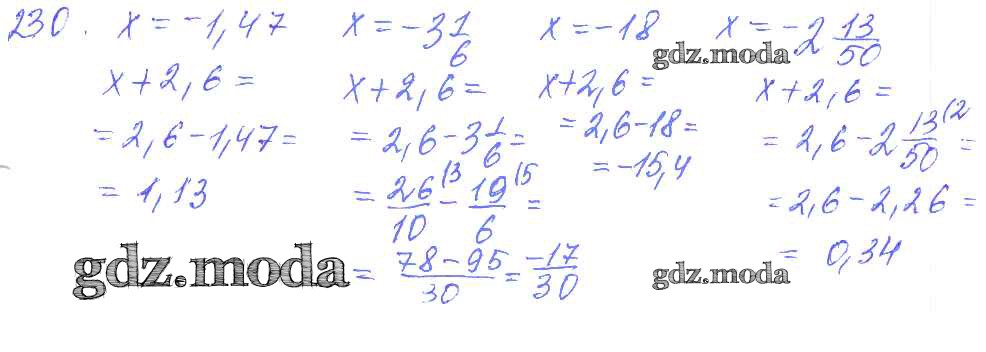 230. x = -1,47   x = -3 1/6   x = -18   x = -2 13/50
gdz.moda
x + 2,6 =   x + 2,6 =   x + 2,6 =   x + 2,6 =
= 2,6 - 1,47 =   = 2,6 - 3 1/6 =   = 2,6 - 18 =   = 2,6 - 2 13/50 (2 =
= 1,13   = 26/10 (3 - 19/6 (5 =   = -15,4   = 2,6 - 2,26 =
gdz.moda   = 78 - 95/30 = -17/30   gdz.moda   = 0,34